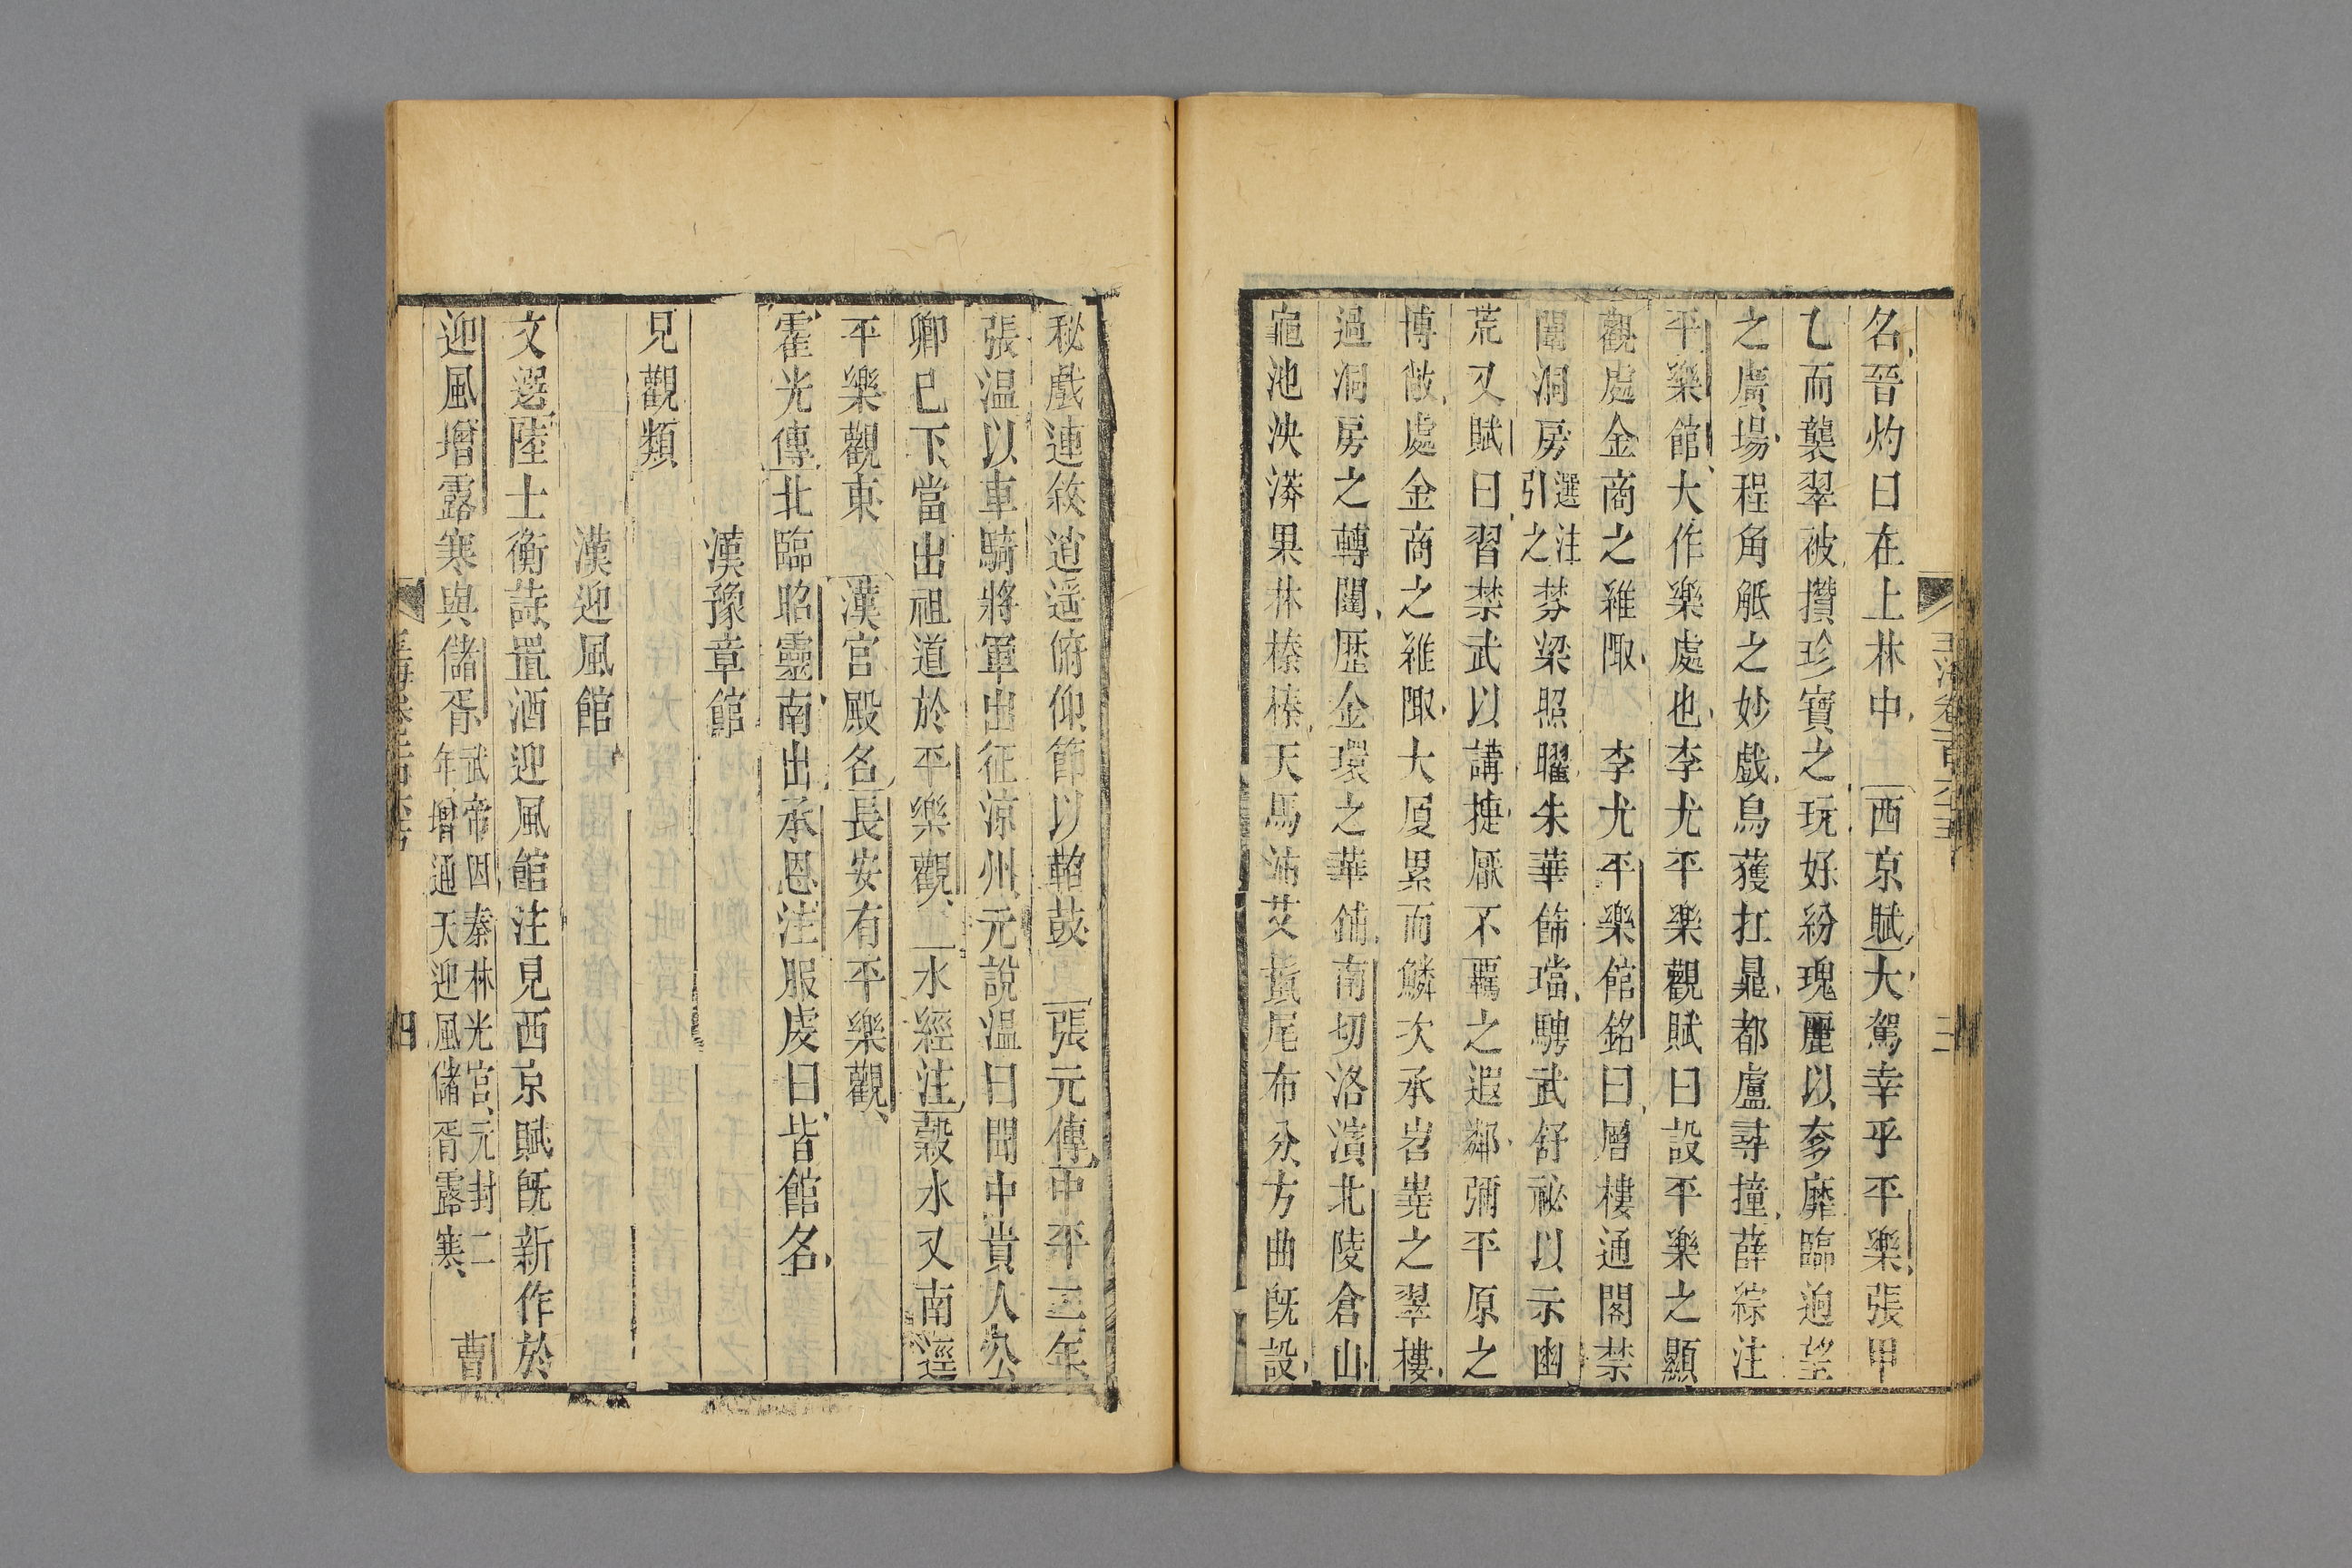 玉海卷一百六十五
三
名晉灼曰在上林中 西京賦大駕幸乎平樂張甲
乙而襲翠被攢珍寶之玩好紛瑰麗以奓靡臨迥望
之廣場程角觝之妙戲烏獲扛鼎都盧尋撞薛綜注
平樂館大作樂處也李尤平樂觀賦曰設平樂之顯
觀處金商之維陬 李尤平樂館銘曰層樓通閣禁
闈洞房選注引之棼梁照曜朱華飾璫騁武舒祕以示幽
荒又賦曰習禁武以講捷厭不羈之遐鄰彌平原之
博敞處金商之維陬大厦累而鱗次承岧嶤之翠樓
過洞房之轉闥歷金環之華鋪南切洛濱北陵倉山
龜池泱漭果林榛榛天馬沛艾鬣尾布分方曲旣設
秘戲連敘逍遥俯仰節以鞀鼓 張元傳中平二年
張温以車騎將軍出征涼州元說温曰聞中貴人公
卿已下當出祖道於平樂觀 水經注穀水又南逕
平樂觀東 漢官殿名長安有平樂觀
霍光傳北臨昭靈南出承恩注服虔曰皆館名
漢豫章館
見觀類
漢迎風館
文選陸士衡詩置酒迎風館注見西京賦旣新作於
迎風增露寒與儲胥武帝因秦林光宮元封二年增通天迎風儲胥露寒 曹
四